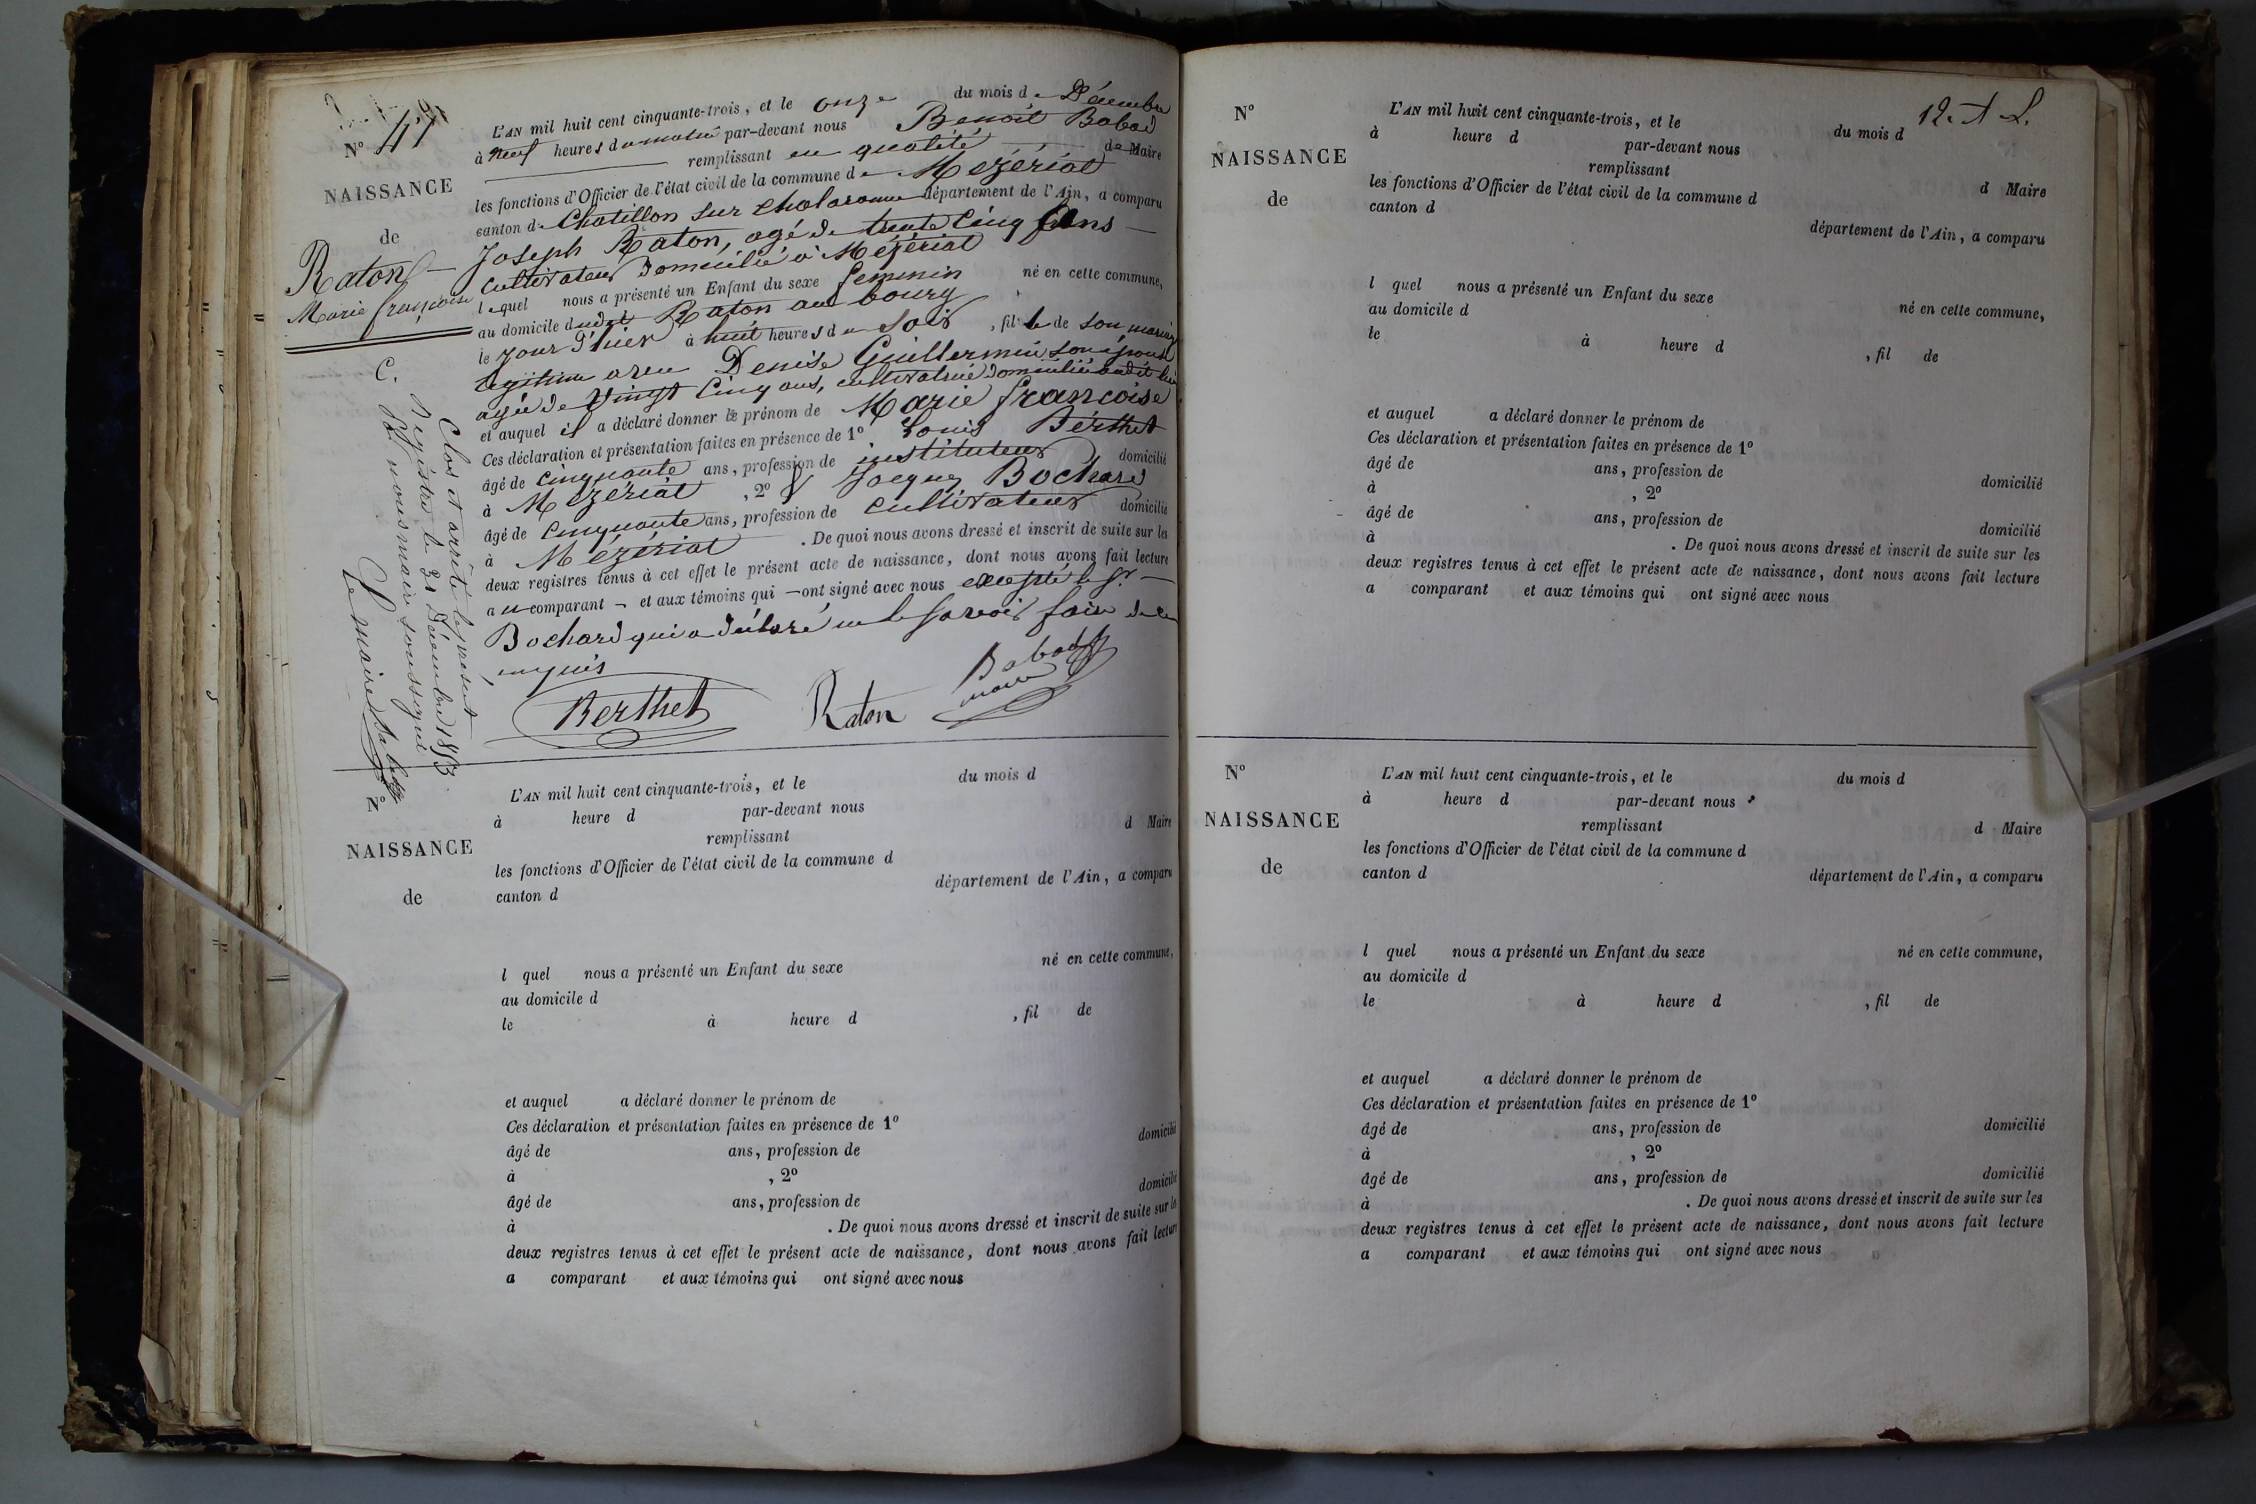 N° 41
NAISSANCE
de
Raton
Marie françoise
L'AN mil huit cent cinquante-trois, et le onze du mois de Décembre
à neuf heures du matin par-devant nous Benoît Babad
remplissant en qualité de Maire
les fonctions d'Officier de l'état civil de la commune de Mézériat
canton de Chatillon sur Chalaronne département de l'Ain, a comparu
Joseph Raton, agé de trente cinq ans
cultivateur domicilié à Mézériat
lequel nous a présenté un Enfant du sexe féminin né en cette commune,
au domicile dudit Raton au bourg
le jour d'hier à huit heures du soir, fille de son mariage
légitime avec Denise Guillermin son épouse
agée de vingt cinq ans, cultivatrice domiciliée audit lieu
et auquel il a déclaré donner le prénom de Marie françoise
Ces déclaration et présentation faites en présence de 1° Louis Berthet
âgé de cinquante ans, profession de instituteur domicilié
à Mézériat, 2° Jacques Bochard
âgé de cinquante ans, profession de cultivateur domicilié
à Mézériat. De quoi nous avons dressé et inscrit de suite sur les
deux registres tenus à cet effet le présent acte de naissance, dont nous avons fait lecture
au comparant et aux témoins qui ont signé avec nous excepté le Sr
Bochard qui a déclaré ne le savoir faire de ce
enquis
Berthet Raton Babad
maire
C.
Clos et arrêté le présent
Registre le 31 Décembre 1853
Par nous maire soussigné
Le maire Babad
N°
NAISSANCE
de
L'AN mil huit cent cinquante-trois, et le du mois d
à heure d par-devant nous
remplissant d Maire
les fonctions d'Officier de l'état civil de la commune d
canton d département de l'Ain, a comparu
l quel nous a présenté un Enfant du sexe né en cette commune,
au domicile d
le à heure d , fil de
et auquel a déclaré donner le prénom de
Ces déclaration et présentation faites en présence de 1°
âgé de ans, profession de domicilié
à , 2°
âgé de ans, profession de domicilié
à . De quoi nous avons dressé et inscrit de suite sur les
deux registres tenus à cet effet le présent acte de naissance, dont nous avons fait lecture
a comparant et aux témoins qui ont signé avec nous
12.
N°
NAISSANCE
de
L'AN mil huit cent cinquante-trois, et le du mois d
à heure d par-devant nous
remplissant d Maire
les fonctions d'Officier de l'état civil de la commune d
canton d département de l'Ain, a comparu
l quel nous a présenté un Enfant du sexe né en cette commune,
au domicile d
le à heure d , fil de
et auquel a déclaré donner le prénom de
Ces déclaration et présentation faites en présence de 1°
âgé de ans, profession de domicilié
à , 2°
âgé de ans, profession de domicilié
à . De quoi nous avons dressé et inscrit de suite sur les
deux registres tenus à cet effet le présent acte de naissance, dont nous avons fait lecture
a comparant et aux témoins qui ont signé avec nous
N°
NAISSANCE
de
L'AN mil huit cent cinquante-trois, et le du mois d
à heure d par-devant nous
remplissant d Maire
les fonctions d'Officier de l'état civil de la commune d
canton d département de l'Ain, a comparu
l quel nous a présenté un Enfant du sexe né en cette commune,
au domicile d
le à heure d , fil de
et auquel a déclaré donner le prénom de
Ces déclaration et présentation faites en présence de 1°
âgé de ans, profession de domicilié
à , 2°
âgé de ans, profession de domicilié
à . De quoi nous avons dressé et inscrit de suite sur les
deux registres tenus à cet effet le présent acte de naissance, dont nous avons fait lecture
a comparant et aux témoins qui ont signé avec nous